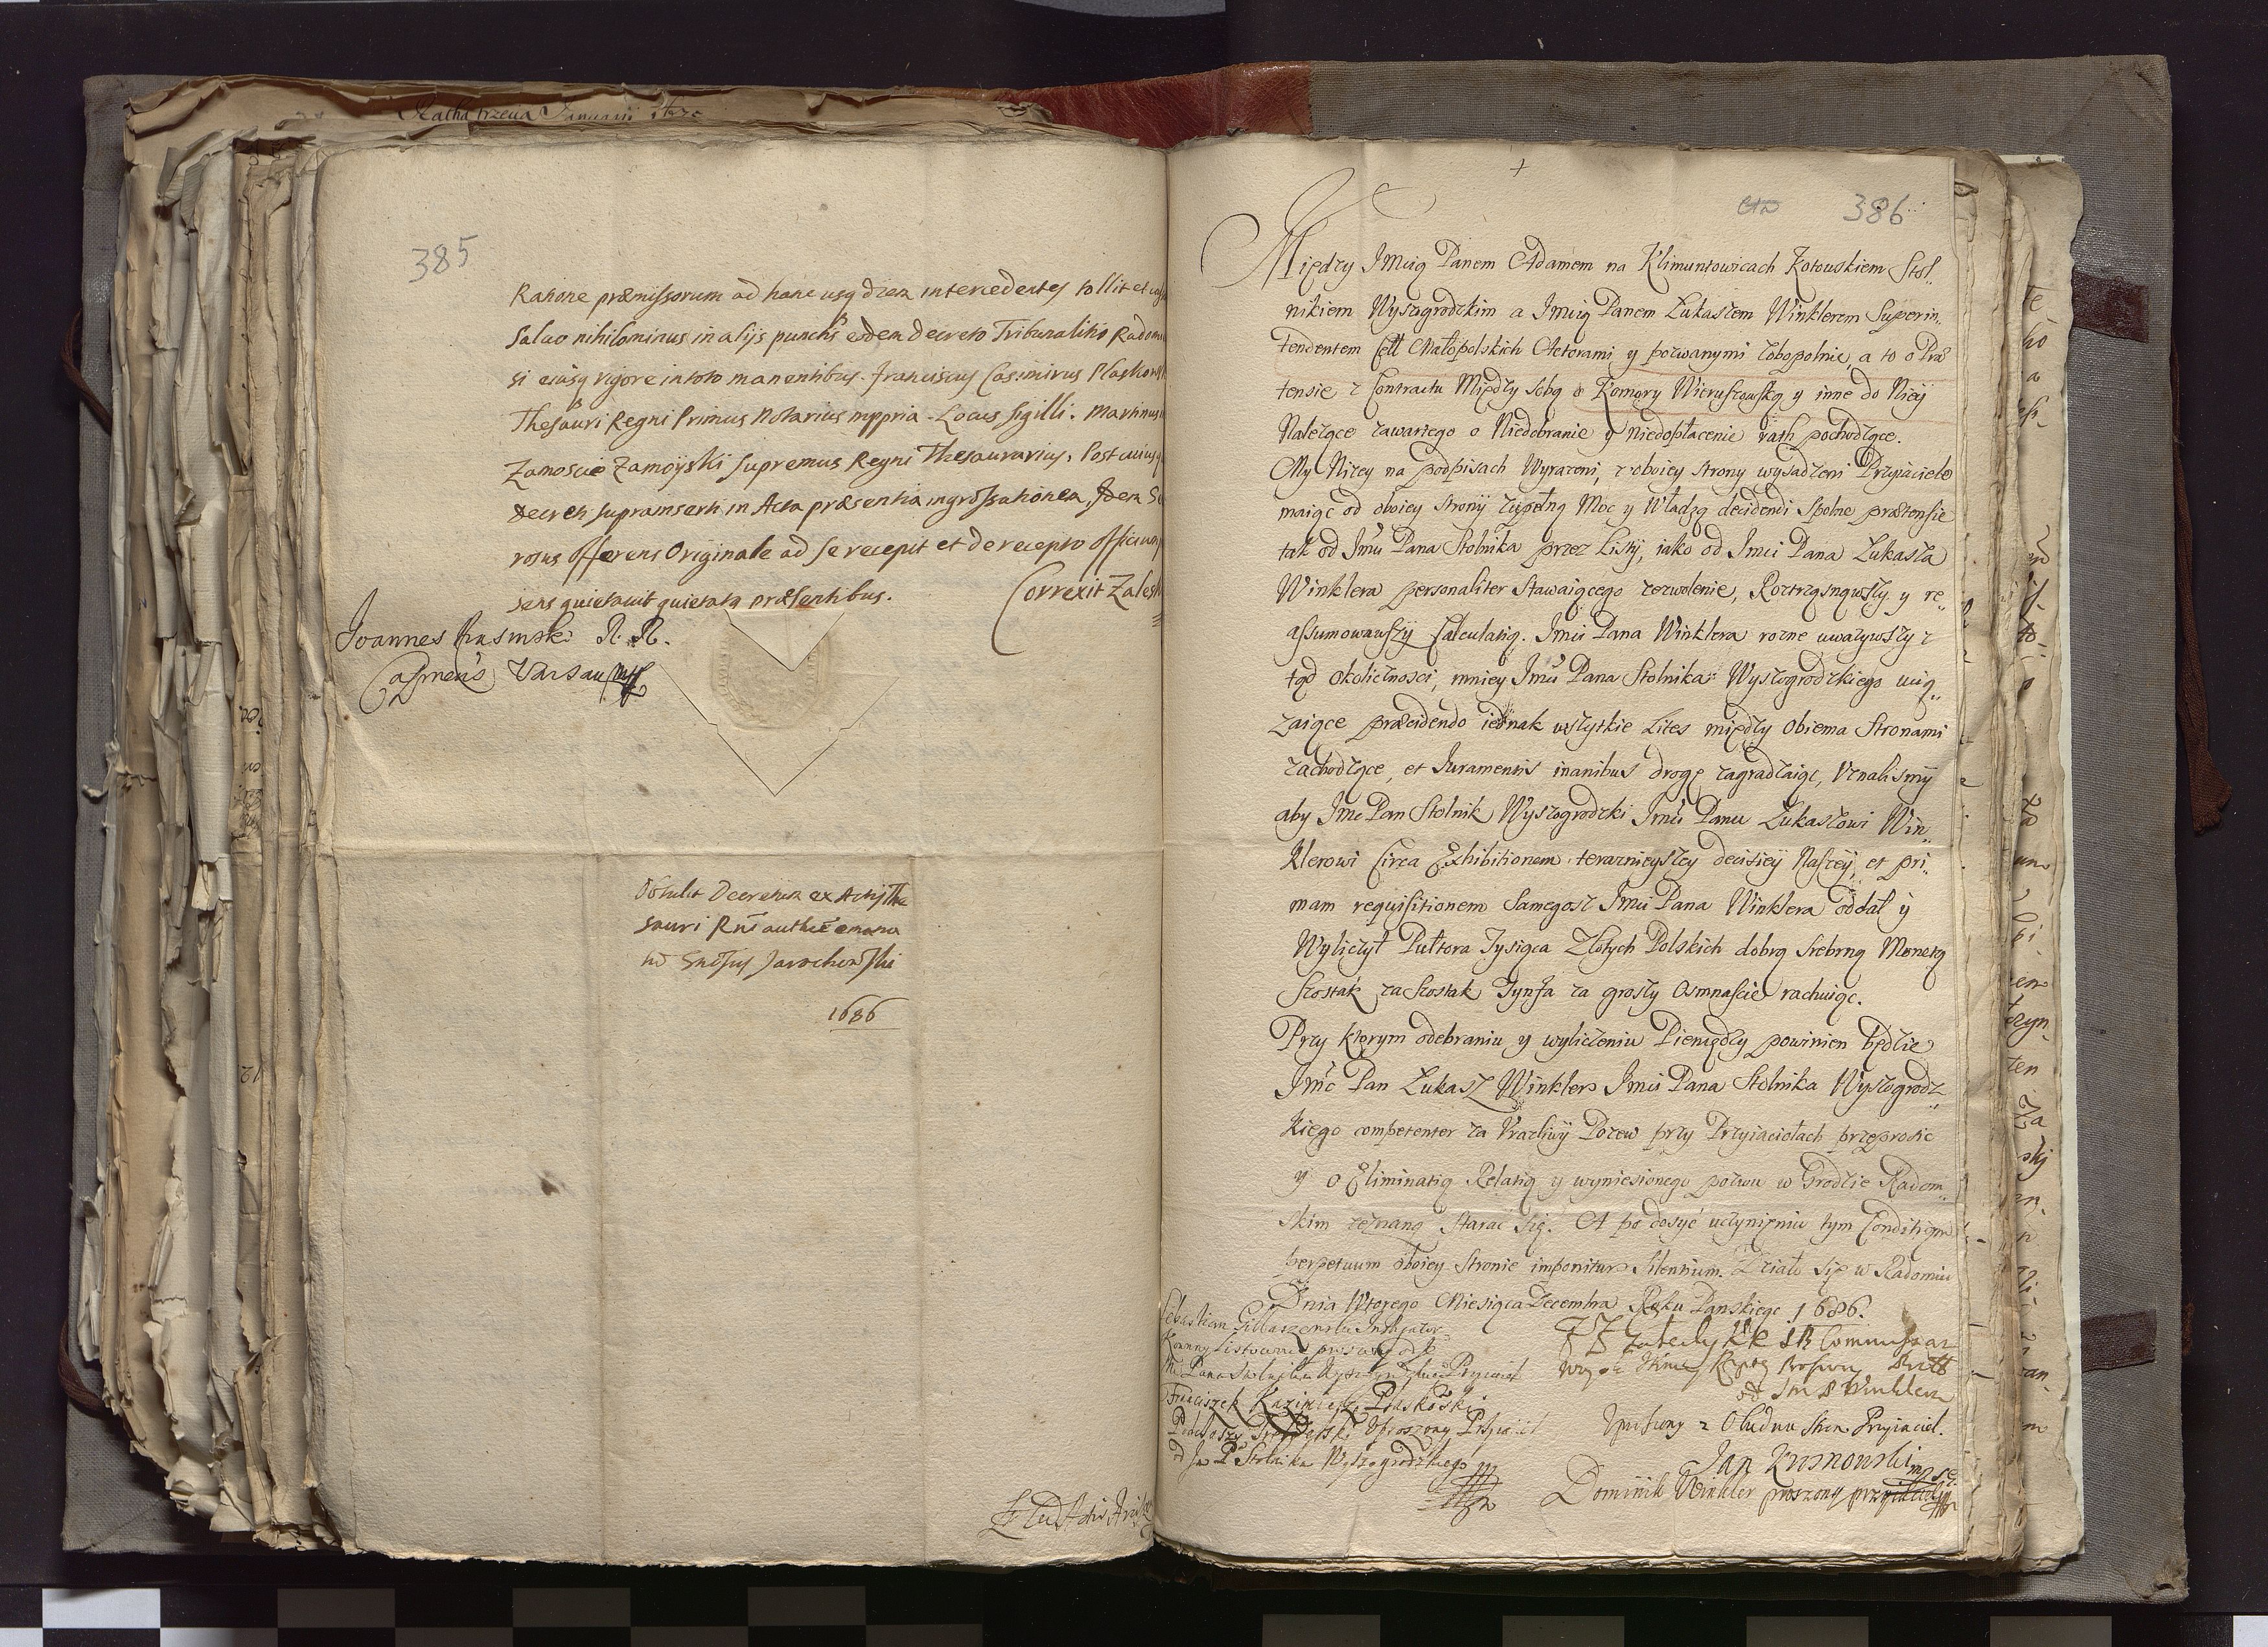 385
Ratione præmissorum ad hanc usq diem intercedentes tollit et
Salvo nihilominus in alijs punctis eodem decreto Tribunalitio Radomi
si eiusq vigore in toto manentibus. Franciscus Casimirus Plaskows
Thesauri Regni Primus Notarius mppria. Locus sigilli. Martinus
Zamoscie Zamoÿski Supremus Regni Thesaurarius. Post cuius
decreti suprainserti in Acta præsentia ingrossationem, Idem
rosus offerens Originale ad se recepit et de recepto officium
sens quietavit quietatq præsentibus.
Correxit Zales
Joannes
Varsav
Obtulit Decretum ex Actis The
sauri Rni authe emana
1686
386
Między Jmcią Panem Adamem na Klimuntowicach Kotowskiem Stol
nikiem Wyszogrodzkim a Jmcią Panem Lukaszem Winklerem Superin
tendentem Cell Małopolskich Actorami y pozwanymi zobopolnie, a to o Præ
tensie z Contractu Między Sobą o Komory Wieruszowską y inne do Nieÿ
Należące zawartego o Niedobranie y Niedopłacenie rath pochodzące.
My Niżey na podpisach Wyrażeni, z oboiey strony wysadzeni Przyiaciele
maiąc od oboiey Stronÿ zupełną Moc y Władzą decidendi Spolne prætensie
tak od Jmci Pana Stolnika przez Listÿ, iako od Jmci Pana Lukasza
Winklera personaliter Stawaiącego zezwolenie, Roztrząsnąwszy y re
assumowawszÿ Calculatią. Jmci Pana Winklera rozne uważywszy z
tąd okoliczności, mniey Jmci Pana Stolnika Wyszogrodzkiego wią
zaiące præcidendo iednak wszytkie Lites między Obiema Stronami
zachodzące, et Iuramentis inanibus drogę zagradzaiąc, Uznalismÿ
aby Jmc Pan Stolnik Wyszogrodzki Jmci Panu Lukaszowi Win
klerowi Circa Exhibitionem terazniejszey decisieÿ Naszeÿ, et pri
mam requisitionem Samegosz Jmci Pana Winklera oddał ÿ
Wyliczył Pułtora Tysiąca Złotych Polskich dobrą Srebrną Monetą
Szostak za Szostak Tynfa za groszy Osmnascie rachuiąc.
Przy ktorym odebraniu y wyliczeniu Pieniędzy powinien będzie
Jmc Pan Lukasz Winkler Jmci Pana Stolnika Wyszogrodz
kiego competenter za Urazliwÿ Pozew przy Przyiaciołach przeprosic
y o Eliminatią Relatiÿ y wyniesionego pozwu w Grodzie Radom
skim zeznaną starać się. A po dosyć uczynieniu tym Conditiom
perpetuum oboiey Stronie imponitur Silentium. Działo się w Radomiu
Dnia Wtorego Miesiąca Decembra Roku Panskiego 1686.
Sebastian
od Jm P Winklera
Franciszek Kazimierz Plaskowski
Uproszony Przyiaciel
od Jm P Stolnika Wyszogrodzkiego
Uproszony z Obudwu Stron Przyiaciel.
Jan Kusnowski
Dominik Winkler proszony przyiaciel